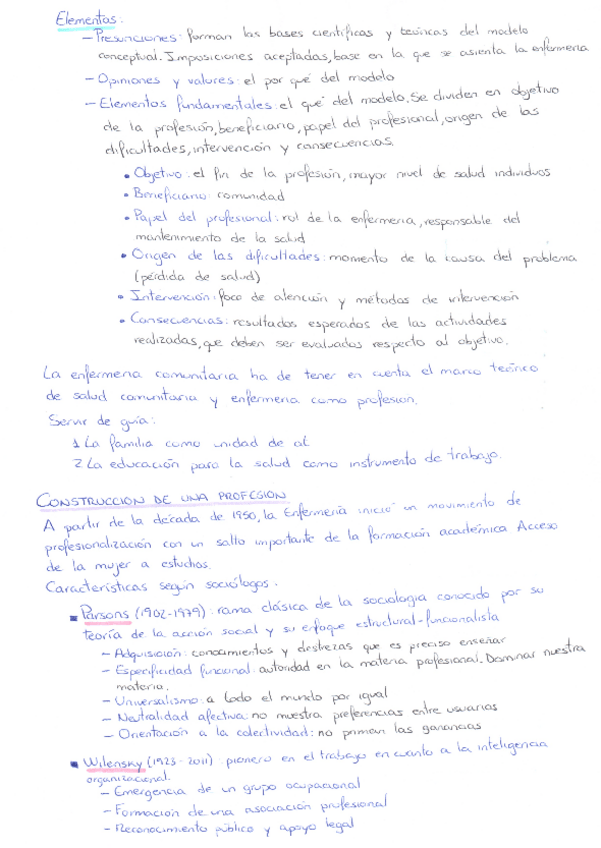 Elementos:
– Presunciones: forman las bases científicas y teóricas del modelo
conceptual. Imposiciones aceptadas, base en la que se asienta la enfermería
– Opiniones y valores: el por qué del modelo
– Elementos fundamentales: el qué del modelo. Se dividen en objetivo
de la profesión, beneficiario, papel del profesional, origen de las
dificultades, intervención y consecuencias.
• Objetivo: el fin de la profesión, mayor nivel de salud individuos
• Beneficiario: comunidad
• Papel del profesional: rol de la enfermería, responsable del
mantenimiento de la salud
• Origen de las dificultades: momento de la causa del problema
(pérdida de salud)
• Intervención: foco de atención y métodos de intervención
• Consecuencias: resultados esperados de las actividades
realizadas, que deben ser evaluados respecto al objetivo.
La enfermería comunitaria ha de tener en cuenta el marco teórico
de salud comunitaria y enfermería como profesión.
Servir de guía:
1. La familia como unidad de at.
2. La educación para la salud como instrumento de trabajo.
CONSTRUCCIÓN DE UNA PROFESIÓN
A partir de la década de 1950, la Enfermería inició un movimiento de
profesionalización con un salto importante de la formación académica Acceso
de la mujer a estudios.
Características según sociólogos:
▪ Parsons (1902-1979): rama clásica de la sociología conocido por su
teoría de la acción social y su enfoque estructural-funcionalista
– Adquisición: conocimientos y destrezas que es preciso enseñar
– Especificidad funcional: autoridad en la materia profesional. Dominar nuestra
materia.
– Universalismo: a todo el mundo por igual
– Neutralidad afectiva: no muestra preferencias entre usuarios
– Orientación a la colectividad: no priman las ganancias
▪ Wilensky (1923-2011): pionero en el trabajo en cuanto a la inteligencia
organizacional.
– Emergencia de un grupo ocupacional
– Formación de una asociación profesional
– Reconocimiento público y apoyo legal